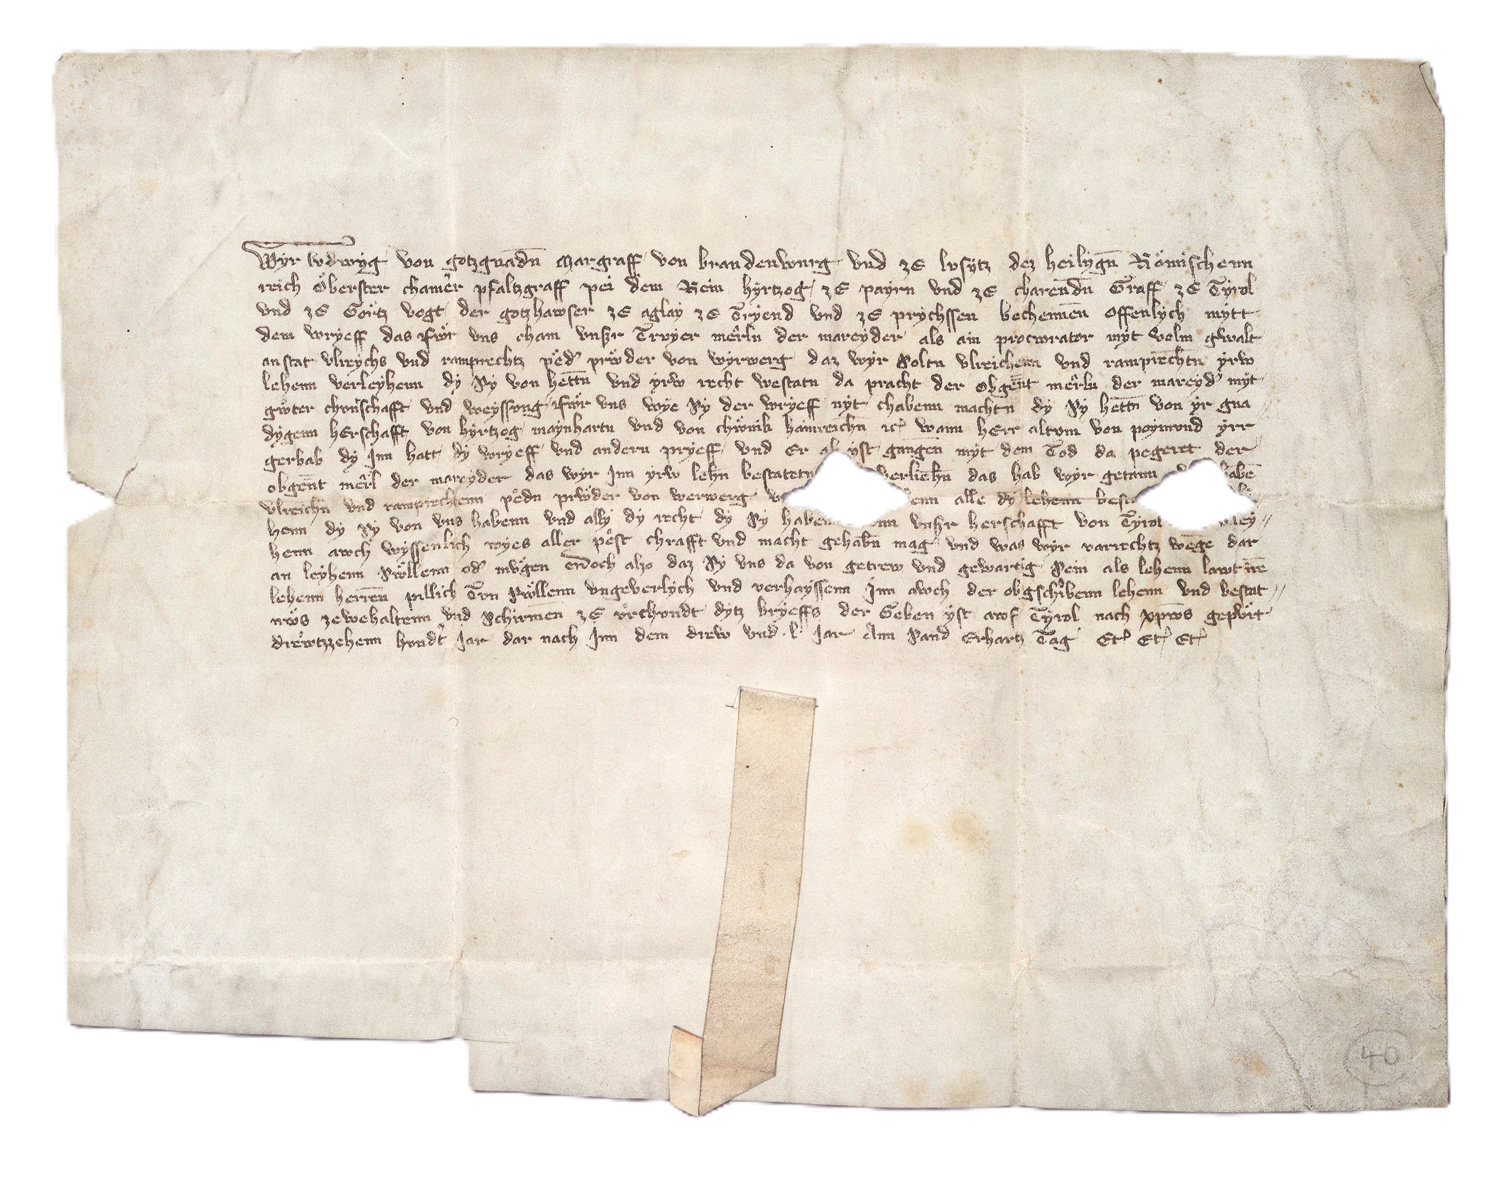 Wyr lvdwyg von gotzgnadn̄ Margraff von brandenwurg vnd ze lvsytz dez heilygn̄ Römischenn
reich Öberster chamer pfaltzgraff pei dem Rein hyrtzog ze payrn vnd ze charendn̄ Graff ze Tyrol
vnd ze Görtz vogt der gotzhawser ze aglay ze Tryend vnd ze prychssen bechennen̄ Offenlych mytt
dem wryeff das fwr vns cham vnsr Trvyer merln der mareyder als ain procwrator myt volm gwalt
anstat vlrychs vnd ramprechtz pröder von wyrwerg daz wyr Soltn vlreichenn vnd ramprechtn yrw
lehenn verleyhenn dy Sy von hettn̄ vnd yrw recht westatn da pracht der Obgent merln der mareyd myt
gwter chvntschafft vnd weyssvng fwr vns wye Sy der wryeff nyt chabenn machtn dy Sy hettn̄ von yr gna
dygenn herschafft von hyrtzog maynhartn vnd von chwnik hainreichn̄ wann herr altvm von poymvnd yrr
gerhab dy Inn hatt dy wryeff vnd andern pryeff vnd er ab yst gangen̄ myt dem Tod da pegeret der
obgent merl der mareyder das wyr Inn yrw lehn̄ bestatetn verliehn̄ das hab wyr getann habē
vlreichn̄ vnd ramprechtenn prwder von werwerg enn alle dy lehenn best
henn dy Sy von vns habenn vnd ally dy recht dy Sy haben vnsr herschafft von Tyrol ley
henn awch wyssenlich wyes aller pest chrafft vnd macht gehabn̄ mag vnd was wyr varrechtz wege dar
an leyhenn Swllenn od mvgen endoch also daz Sy vns da von getrew vnd gewartig Sein als lehenn lawt ire
lehenn herren̄ pillich Tvn Swllenn vngeverlych vnd verhayssenn Inn awch der obgschribenn lehenn vnd bestat
nws zewehaltenn vnd Schirmen̄ ze vrchvndt dytz bryeffs der Geben yst awf Tyrol nach xpws gepvrt
drewtzzehenn hvndt Jar dar nach Inn dem drew vnd l Jar Ann Sand Erhartz Tag Et Et Et
40